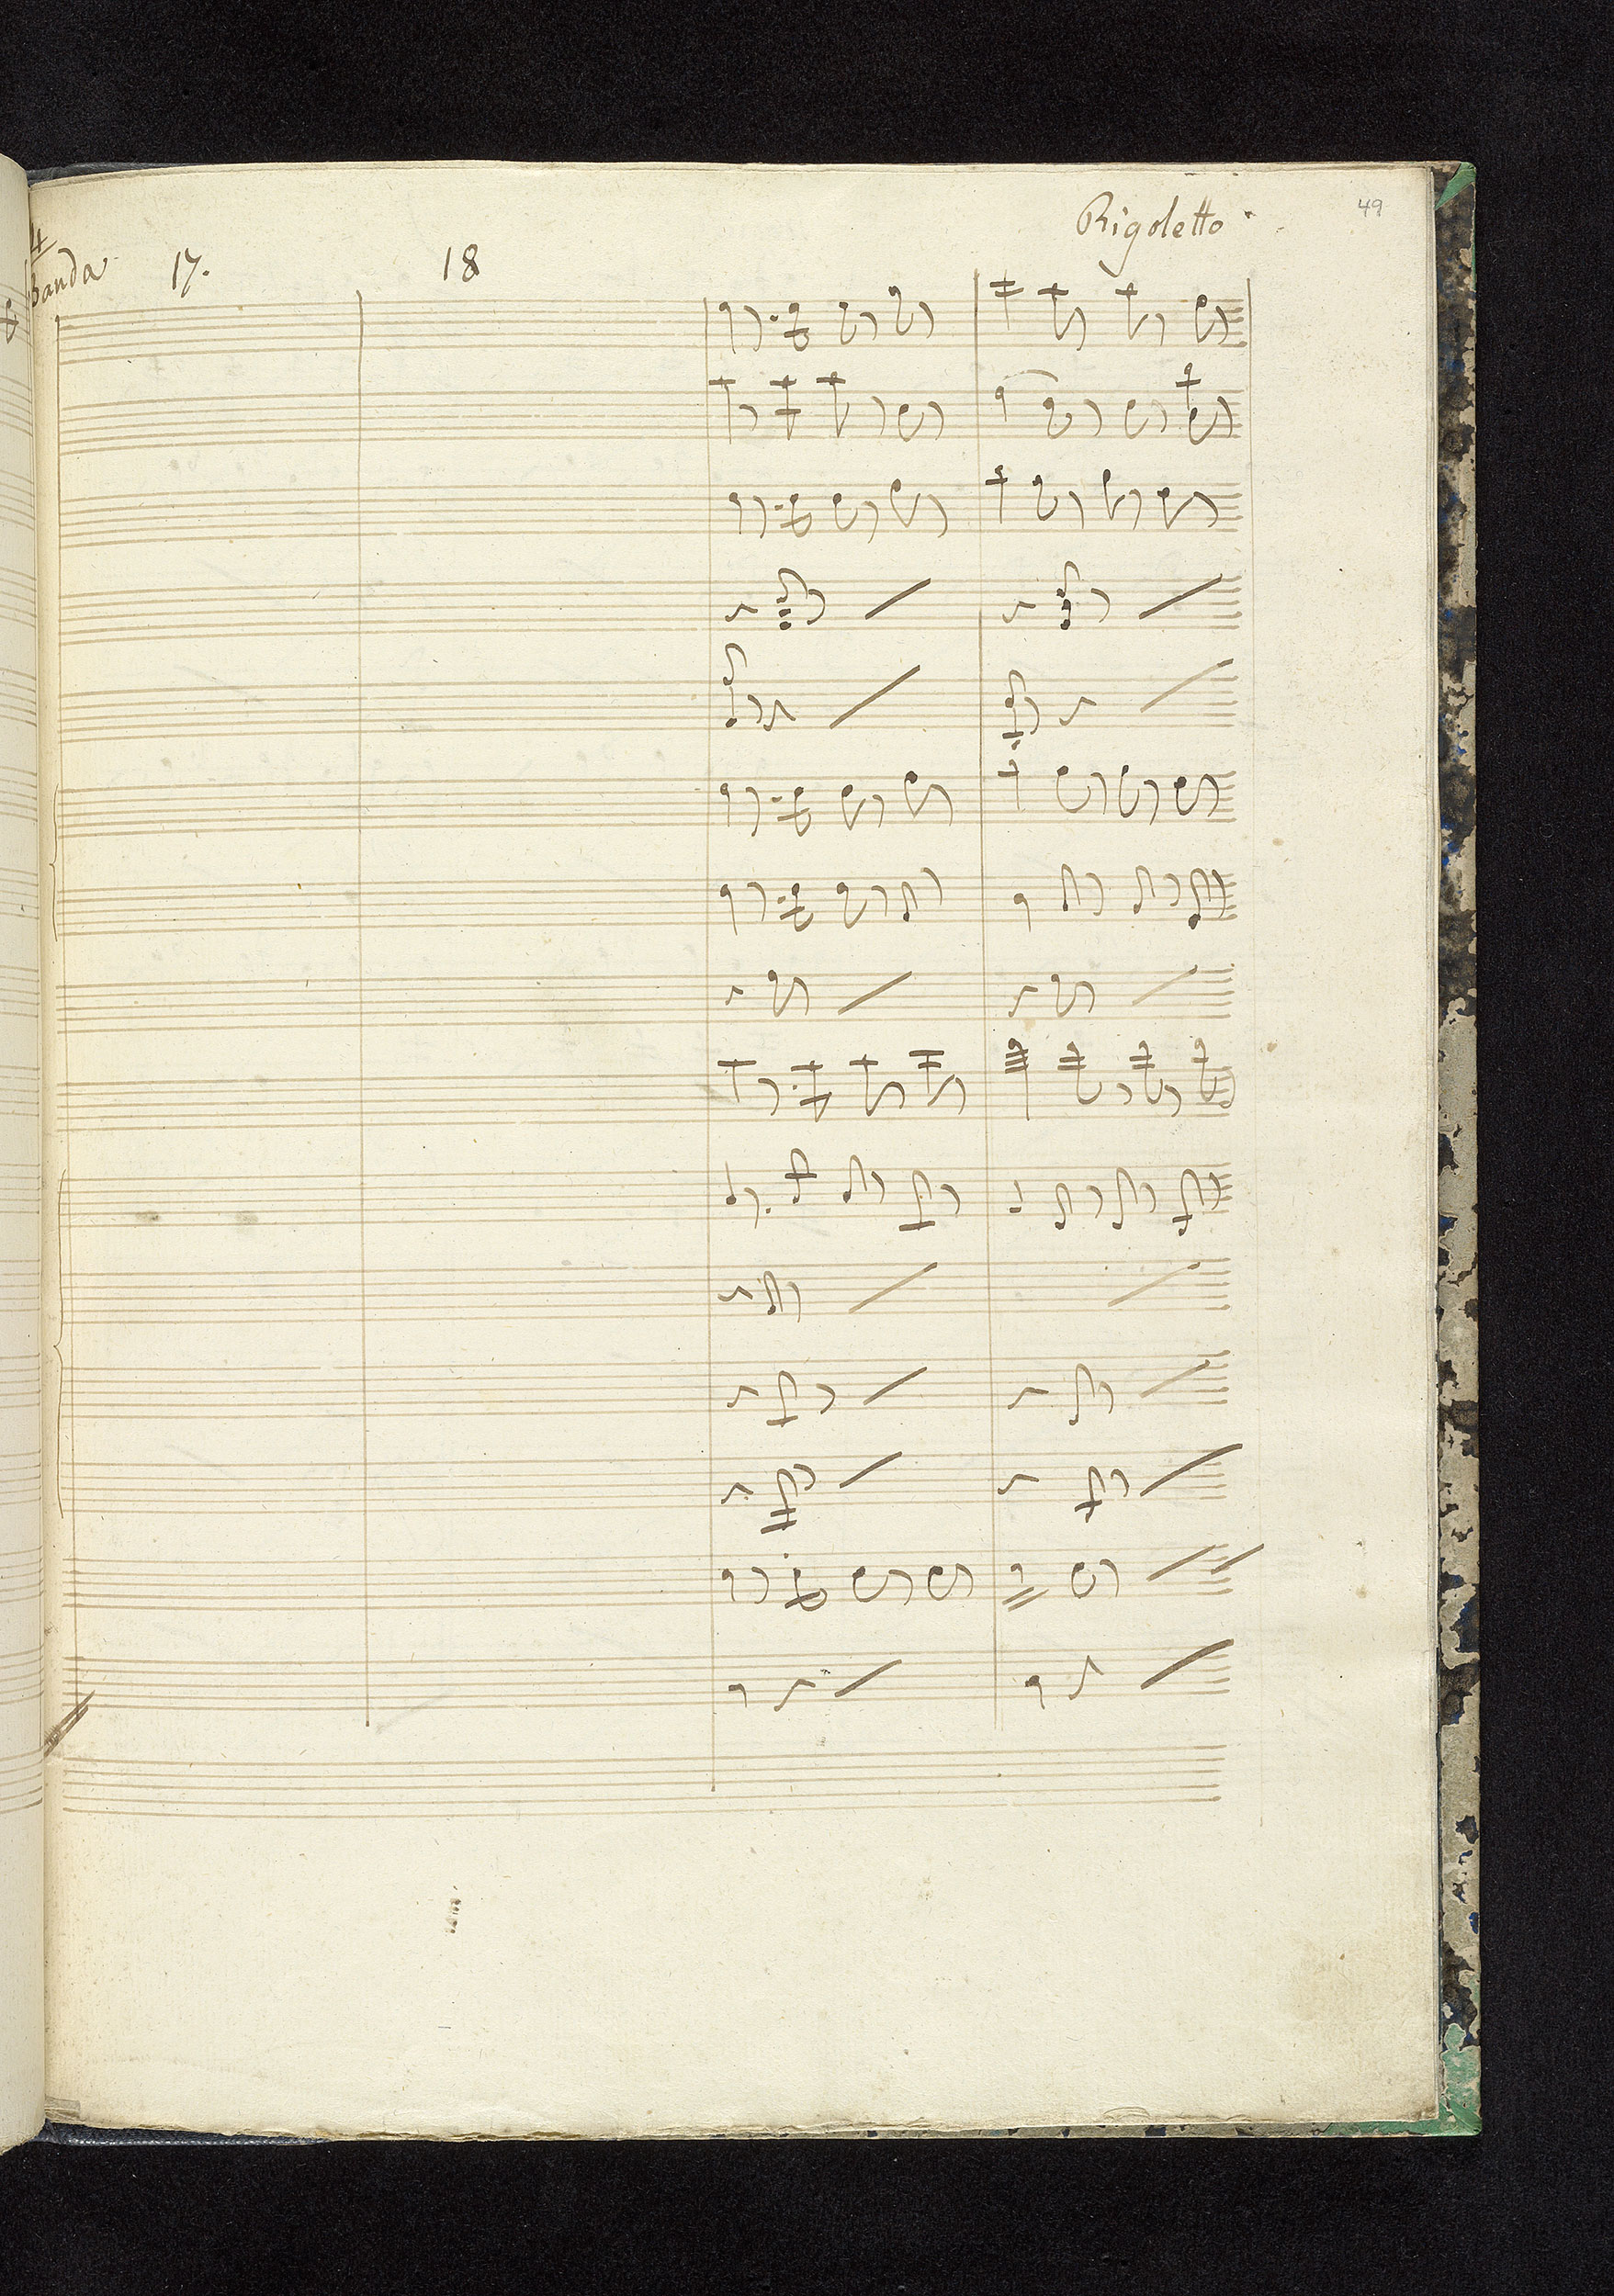 Rigoletto
49
4
Banda
17.
18